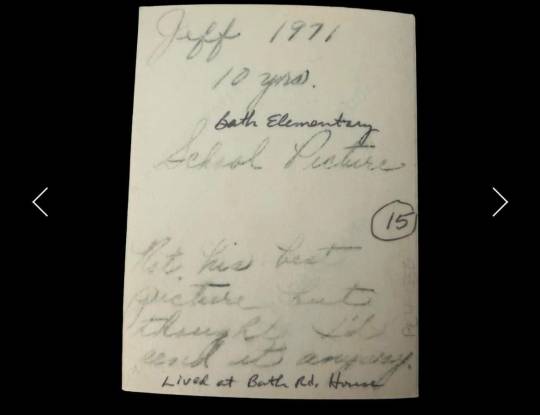 Jeff 1971
10 yrs.
Bath Elementary
School Picture
15
Not his best
picture but
thought I'd
send it anyway.
Lived at Bath Rd. House